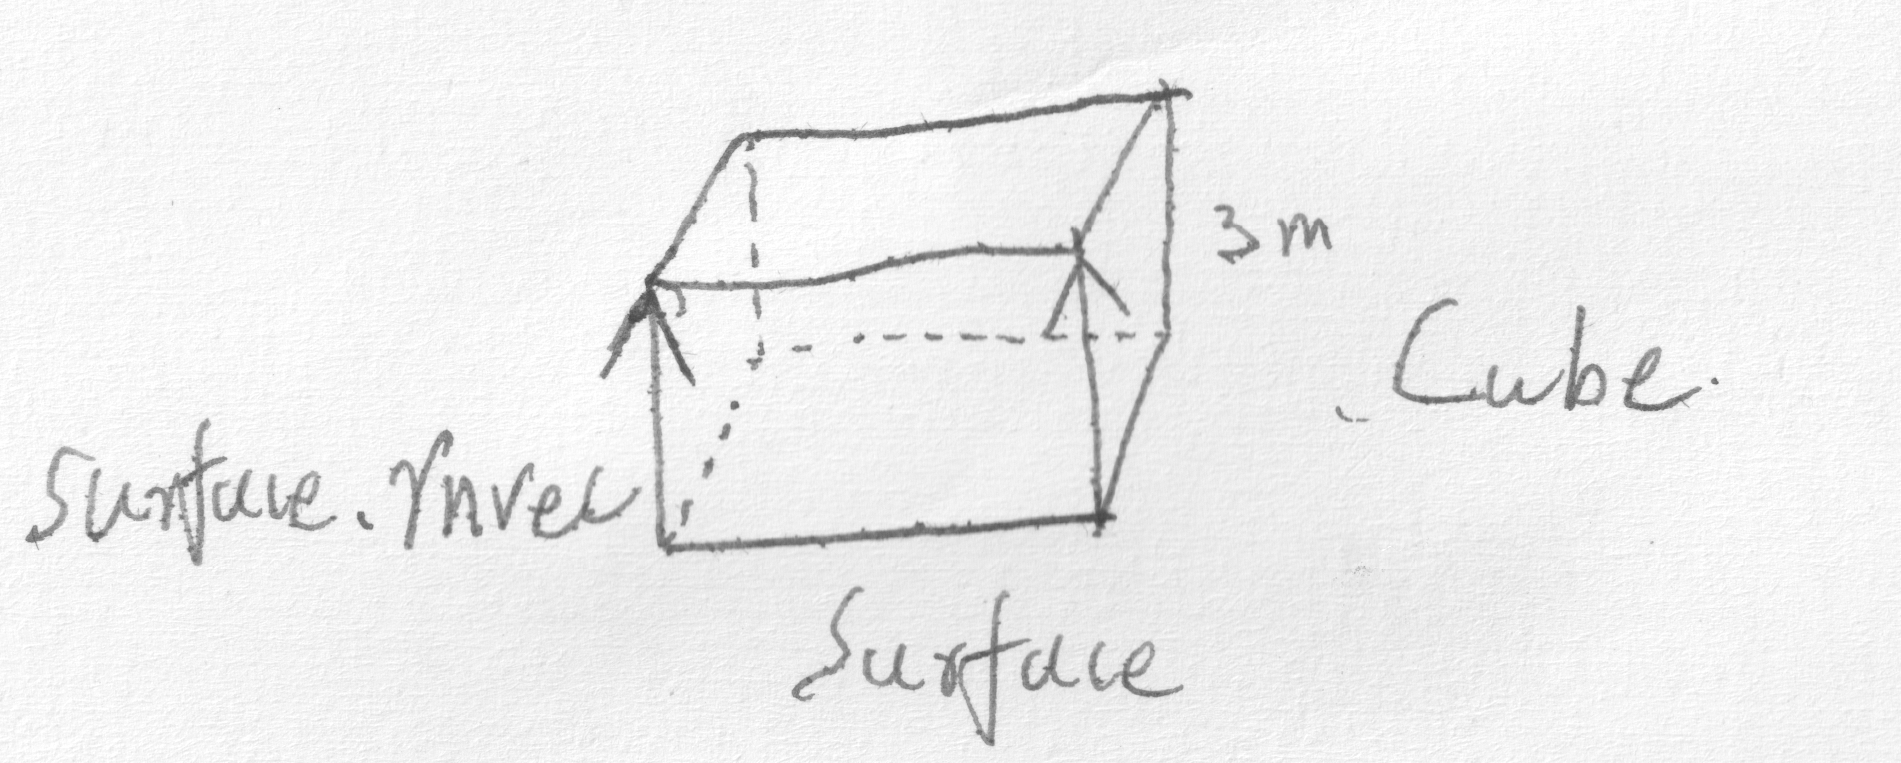 3m
Cube.
Surface.Ynvec
Surface